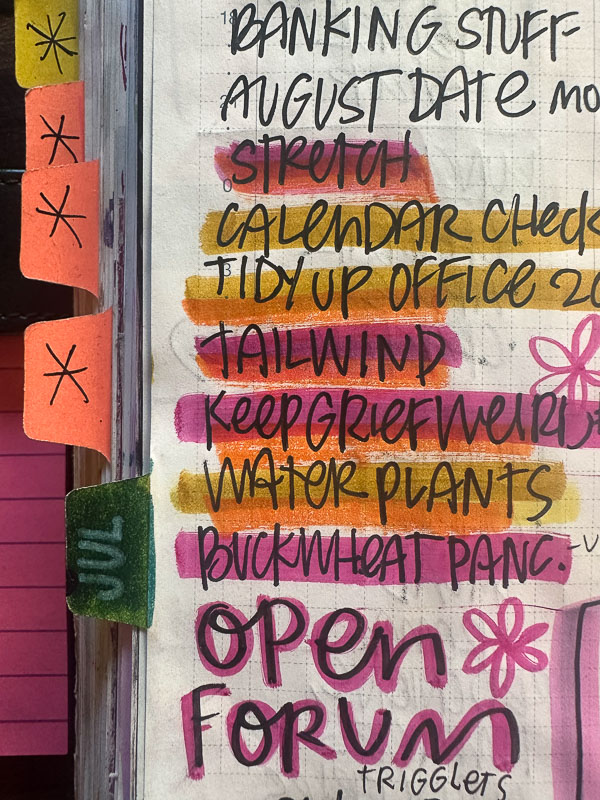 BANKING STUFF
AUGUST DATE MO
STRETCH
CALENDAR CHECK
TIDY UP OFFICE 20
TAILWIND
KEEP GRIEF WEIRD
WATER PLANTS
BUCKWHEAT PANC. -V
JUL
OPEN
FORUM
TRIGGLETS